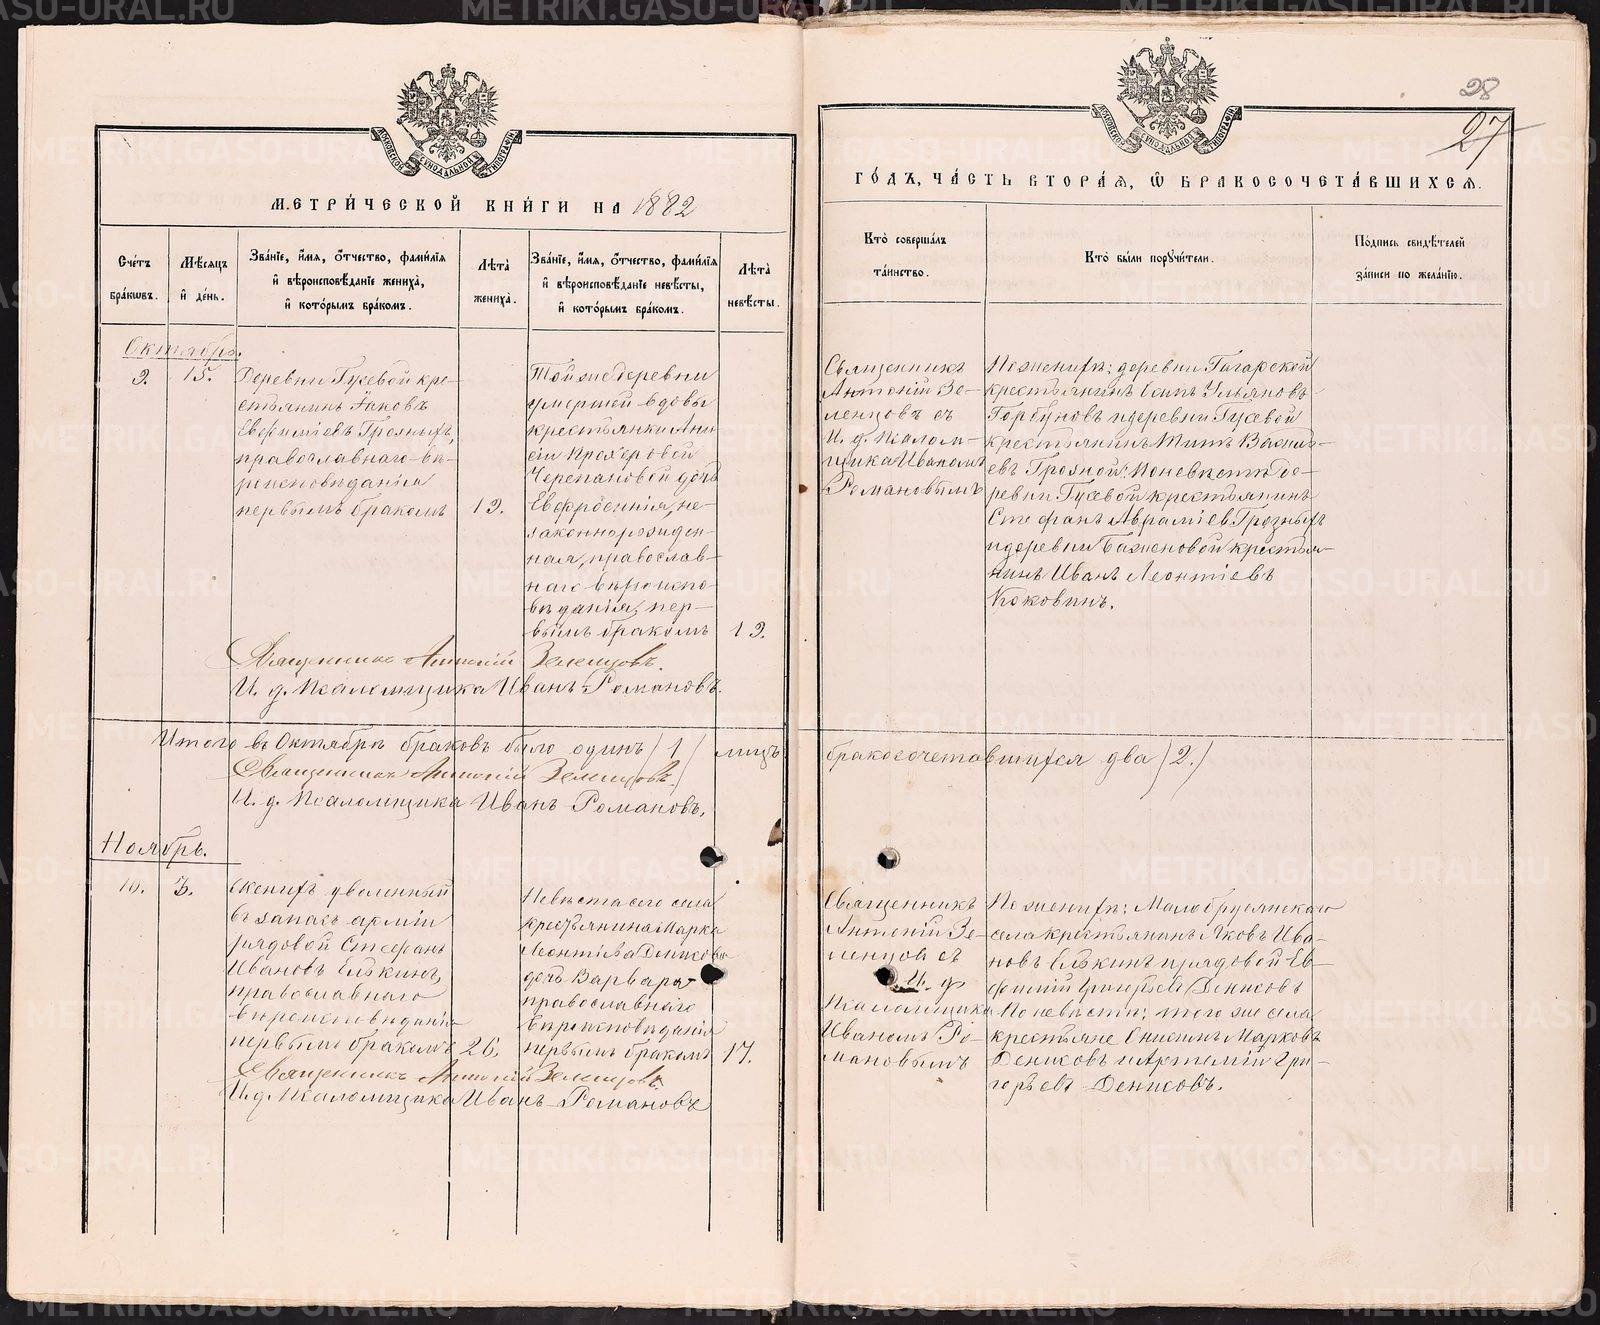 28
27
МЕТРИЧЕСКОЙ КНИГИ НА 1882
ГОДЪ, ЧАСТЬ ВТОРАЯ, Ѡ БРАКОСОЧЕТАВШИХСЯ.
Счетъ браковъ.
Мѣсяцъ и день.
Званіе, имя, отчество, фамилія
и вѣроисповѣданіе жениха,
и которымъ бракомъ.
Лѣта жениха.
Званіе, имя, отчество, фамилія
и вѣроисповѣданіе невѣсты,
и которымъ бракомъ.
Лѣта невѣсты.
Кто совершалъ
таинство.
Кто были поручители.
Подпись свидѣтелей
записи по желанію.
Октябрь.
9.
15.
Деревни Гусевой кре-
стьянинъ Іаковъ
Евфиміевъ Грозныхъ,
православнаго вѣ-
роисповѣданія
первымъ бракомъ
19.
Той же деревни
умершей вдовы
крестьянки Ани
сіи Прохоровой
Черепановой дочь
Евфросинія, не-
законнорожден-
ная, православ-
наго вѣроиспо-
вѣданія, пер-
вымъ бракомъ
19.
Священникъ
Антоній Зе-
ленцовъ съ
И. д. Псалом-
щика Иваномъ
Романовымъ
По женихѣ: деревни Гагарской
крестьянинъ Ульяновъ
Горбуновъ и деревни Гусевой
крестьянинъ Титъ Василь-
евъ Грозной; По невѣстѣ де-
ревни Гусевой крестьянинъ
Стефанъ Авраміевъ Грозныхъ
и деревни Баженовой крестья-
нинъ Иванъ Леонтіевъ
Коковинъ.
Священникъ Антоній Зеленцовъ.
И. д. Псаломщика Иванъ Романовъ.
Итого въ Октябрѣ браковъ было одинъ /1/ лицъ
бракосочетавшихся два /2./
Священникъ Антоній Зеленцовъ.
И. д. Псаломщика Иванъ Романовъ.
Ноябрь.
10.
3.
Женихъ уволенный
въ запасъ арміи
рядовой Стефанъ
Ивановъ Елькинъ,
православнаго
вѣроисповѣданія
первымъ бракомъ
26.
Невѣста сего села
крестьянина Марка
Леонтіева Денисова
дочь Варвара
православнаго
вѣроисповѣданія
первымъ бракомъ
17.
Священникъ
Антоній Зе-
ленцовъ съ
И. д.
Псаломщика
Иваномъ Ро-
мановымъ
По женихѣ: Малобрусянскаго
села крестьянинъ Яковъ Ива-
новъ Елькинъ и рядовой Ев-
фимій Григорьевъ Денисовъ
По невѣстѣ: того же села
крестьяне Онисимъ Марковъ
Денисовъ и Артемій Гри-
горьевъ Денисовъ.
Священникъ Антоній Зеленцовъ.
И. д. Псаломщика Иванъ Романовъ
METRIKI.GASO-URAL.RU